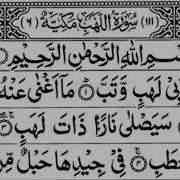 (١١١) سُوْرَةُ اللَّهَبِ مَكِّيَّةٌ (٦)
سْمِ اللهِ الرَّحْمٰنِ الرَّحِيْمِ
لَهَبٍ وَّتَبَّ ۝١ مَآ اَغْنٰى عَنْهُ
سَيَصْلٰى نَارًا ذَاتَ لَهَبٍ ۝٣
حَطَبِ ۝٤ فِيْ جِيْدِهَا حَبْلٌ مِّنْ